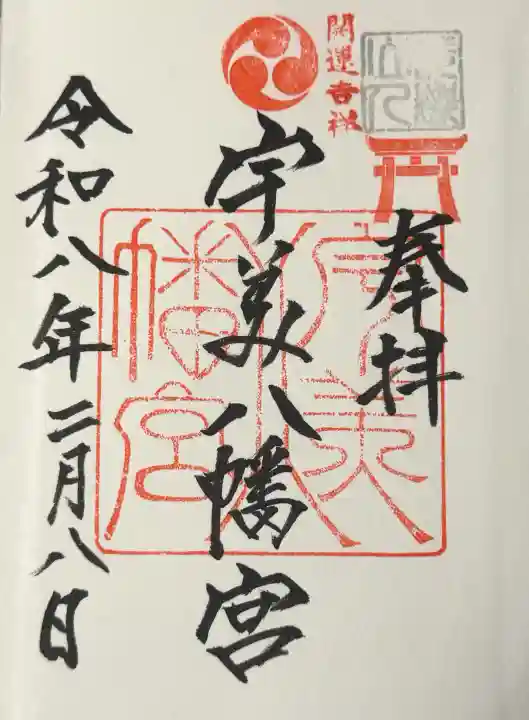 奉拝
開運吉祥
宇美八幡宮
宇美八幡宮
令和八年二月八日